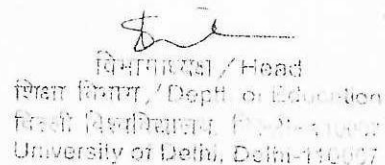 विभागाध्यक्ष / Head
शिक्षा विभाग / Deptt. of Education
दिल्ली विश्वविद्यालय,
University of Delhi, Delhi-110007